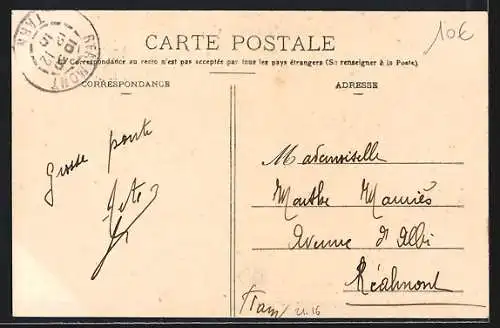 CARTE POSTALE
10€
La Correspondance au recto n'est pas acceptée par tous les pays étrangers (Se renseigner à la Poste).
CORRESPONDANCE
ADRESSE
REALMONT
TARN
Grosse
Mademoiselle
Marthe
Avenue d'Albi
Réalmont
21.16